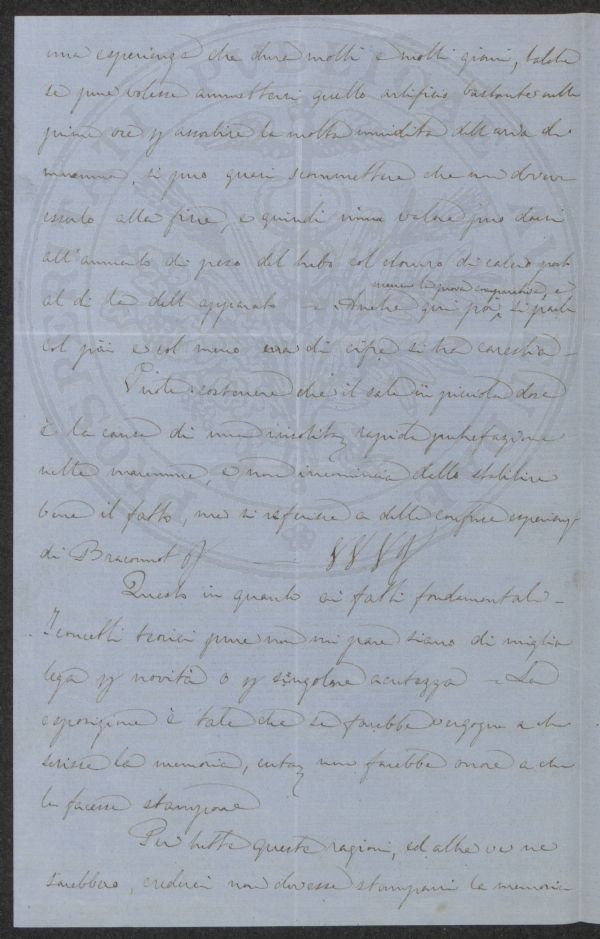 una esperienza che dura molti e molti giorni, talché
se pure volesse ammettersi quello artificio bastante nelle
prime ore p assorbire la molta umidità dell'aria di
maremma, si può quasi scommettere che non dover
esserlo alla fine, e quindi niun valore può darsi
all'aumento di peso del tubo col cloruro di calcio post
al di là dell'apparato – Anche qui poi
manca la prova comparativa, e
si parla
col più e col meno ma di cifre si ha carestia –
sostenere che il sale in piccola dose
è la causa di una insolita rapida putrefazione
nelle maremme, e non incomincia dallo stabilire
bene il fatto, ma si riferisce a delle confuse esperienz
di Braconnot
Questo in quanto ai fatti fondamentali –
I concetti teorici pure non mi pare siano di miglior
lega p novità o p singolare acutezza – La
esposizione è tale che se farebbe vergogna a chi
scrisse la memoria, non farebbe onore a chi
la facesse stampare
Per tutte queste ragioni, ed altre ve ne
sarebbero, crederei non dovesse stamparsi la memoria